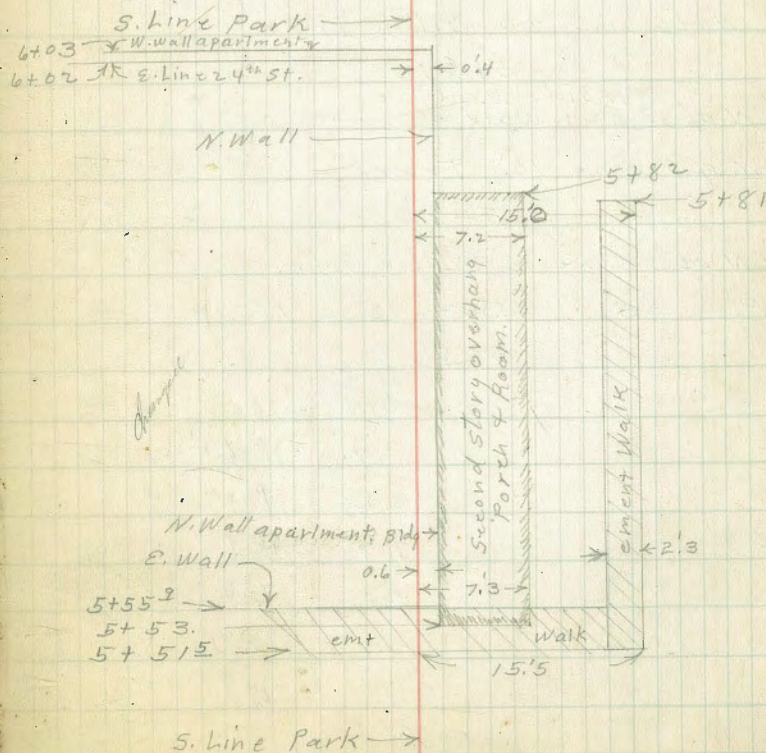 S. Line Park
6+03 W. wall apartment
6+02 E. Line 24th St.
0'.4
N. Wall
5+82
5+81
15.'0
7.2
Second story overhang
Porch & Room.
ement Walk
N. Wall apartment, Bldg
E. Wall
0.6
2'.3
7'.3
5+55 9
5+53.
5+51 5
emt
walk
15.'5
S. Line Park